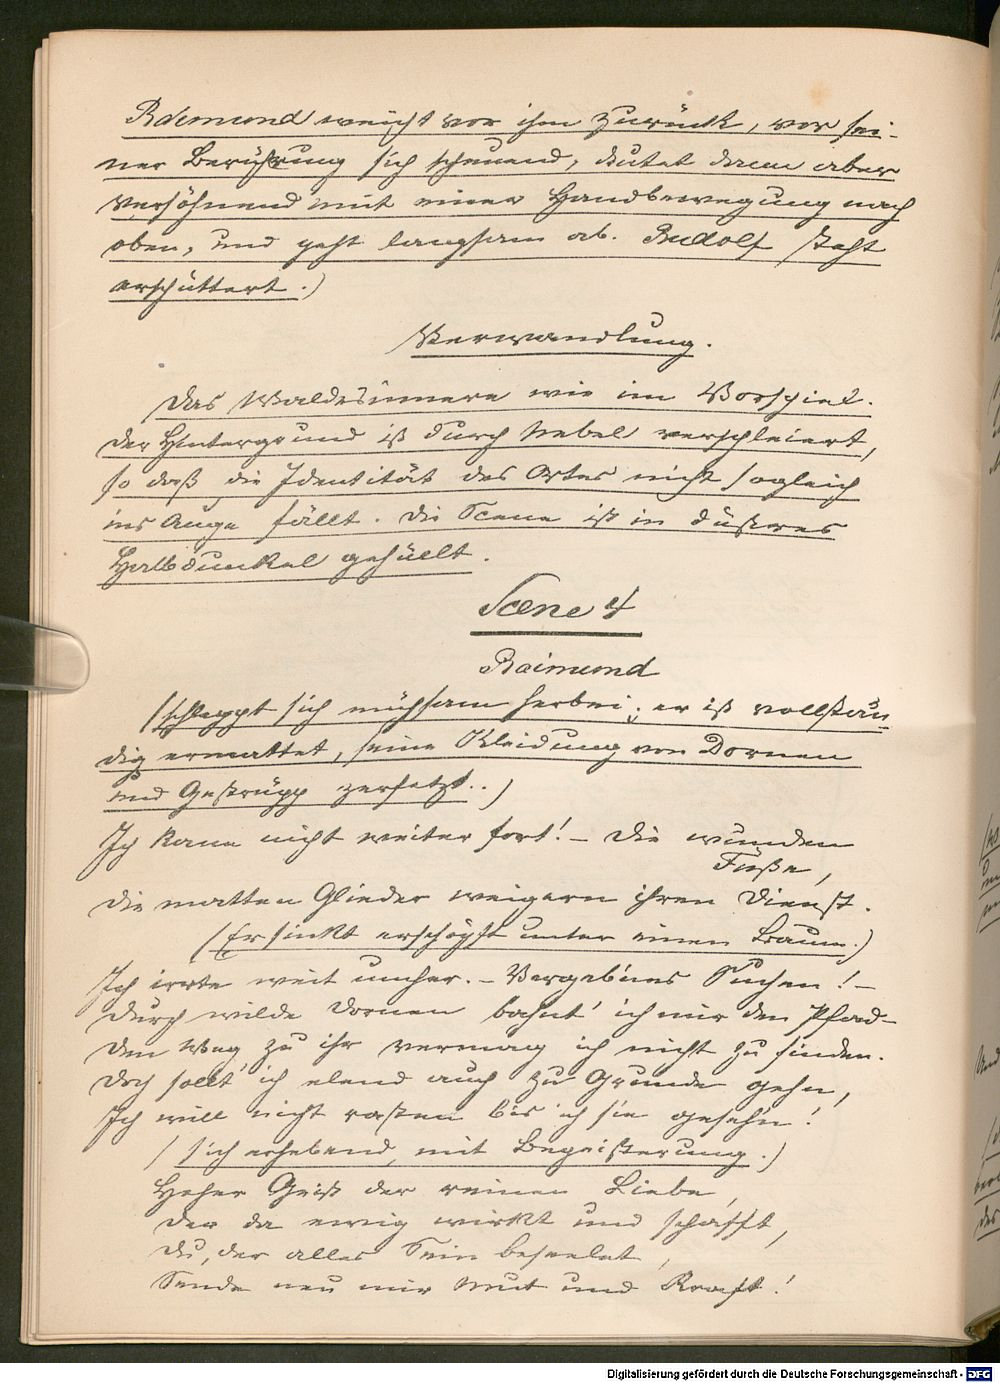 Raimund weicht vor ihm zurück, vor sei-
ner Berührung sich scheuend, deutet dann aber
versöhnend mit einer Handbewegung nach
oben, und geht langsam ab. Rudolf steht
erschüttert.)
Verwandlung.
Das Waldesinnere wie im Vorspiel.
Der Hintergrund ist durch Nebel verschleiert,
so daß die Identität des Ortes nicht sogleich
ins Auge fällt. Die Scene ist in düsteres
Halbdunkel gehüllt.
Scene 4
Raimund
(schleppt sich mühsam herbei; er ist vollstän-
dig ermattet, seine Kleidung von Dornen
und Gestrüpp zerfetzt..)
Ich kann nicht weiter fort! – Die wunden
Füße,
die matten Glieder weigern ihren Dienst.
(Er sinkt erschöpft unter einen Baum.)
Ich irrte weit umher. – Vergeb'nes Suchen! –
Durch wilde Dornen bahnt' ich mir den Pfad –
Den Weg zu ihr vermag ich nicht zu finden.
Doch sollt' ich elend auch zu Grunde gehn,
Ich will nicht rasten bis ich sie geseh'n!
(sich erhebend, mit Begeisterung.)
Hoher Geist der reinen Liebe,
Der da ewig wirkt und schafft,
Du, der alles Sein beseelet,
Sende neu mir Mut und Kraft!
Digitalisierung gefördert durch die Deutsche Forschungsgemeinschaft - DFG